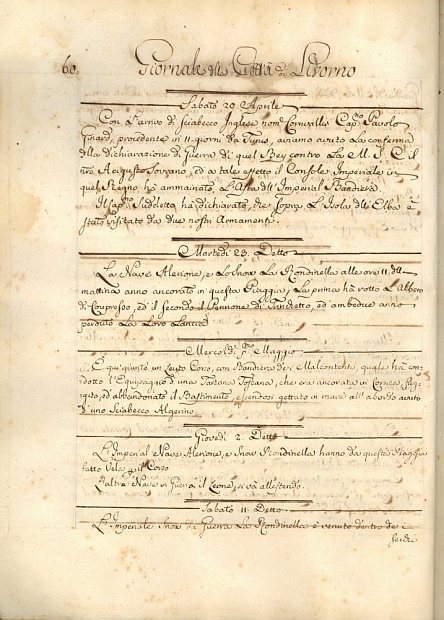 60
Giornale della Città di Livorno
Sabato 20 Aprile
Con l'arrivo di sciabecco Inglese nom.º Cornvalles Cap.º Pavolo
Ginard, procedente in 11 giorni da Tunis, aviamo avuto la conferma
della dichiarazione di Guerra di quel Bey contro la M. I. C. il
nr̃o Augusto Sovrano, ed a tale effetto il Console Imperiale in
quel Regno ha ammainato l'Asta dell'Imperial Bandiera
Il Cap.º Sudoletta ha dichiarato, che sopra l'Isola dell'Elba è
stato visitato da due nostri Armamenti.
Martedì 23. Detto
La Nave Alerione, e lo Snox la Rondinella alle ore 11 della
mattina anno ancorato in questa Piaggia, la prima ha rotto l'Albero
di Coupresso, ed il secondo il Pennone di Trinchetto, ed ambedue anno
perduto la loro Lancia
Mercoldì p.º Maggio
È qui giunto un Leuto Corso, con Bandiera di Malcontenti, quale ha con-
dotto l'Equipaggio d'una Tartana Toscana, che era ancorata in Corsica,
ed abbandonato il Bastimento, essendosi gettato in mare all'abordo avuto
d'uno Sciabecco Algerino.
Giovedì 2. Detto
L'Imperial Nave Alerione, e Snox Rondinella hanno da questa Piaggia
fatto Vela per il Corso
L'altra Nave in Guerra il Leone, si và allestendo.
Sabato 11. Detto
L'Imperiale Snox da Guerra la Rondinella è venuto dentro de